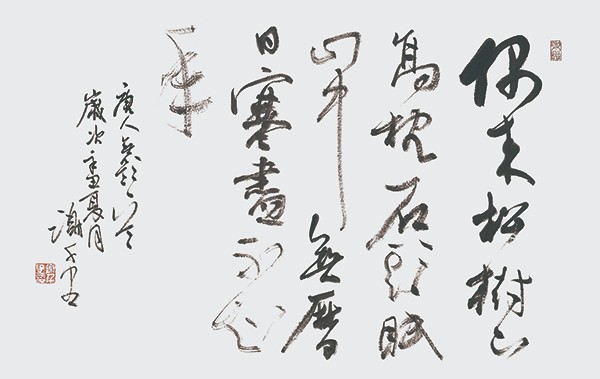 偶来松樹下
高枕石頭眠
山中無曆
日寒盡不知
年
唐人
歲次辛丑夏月
謝